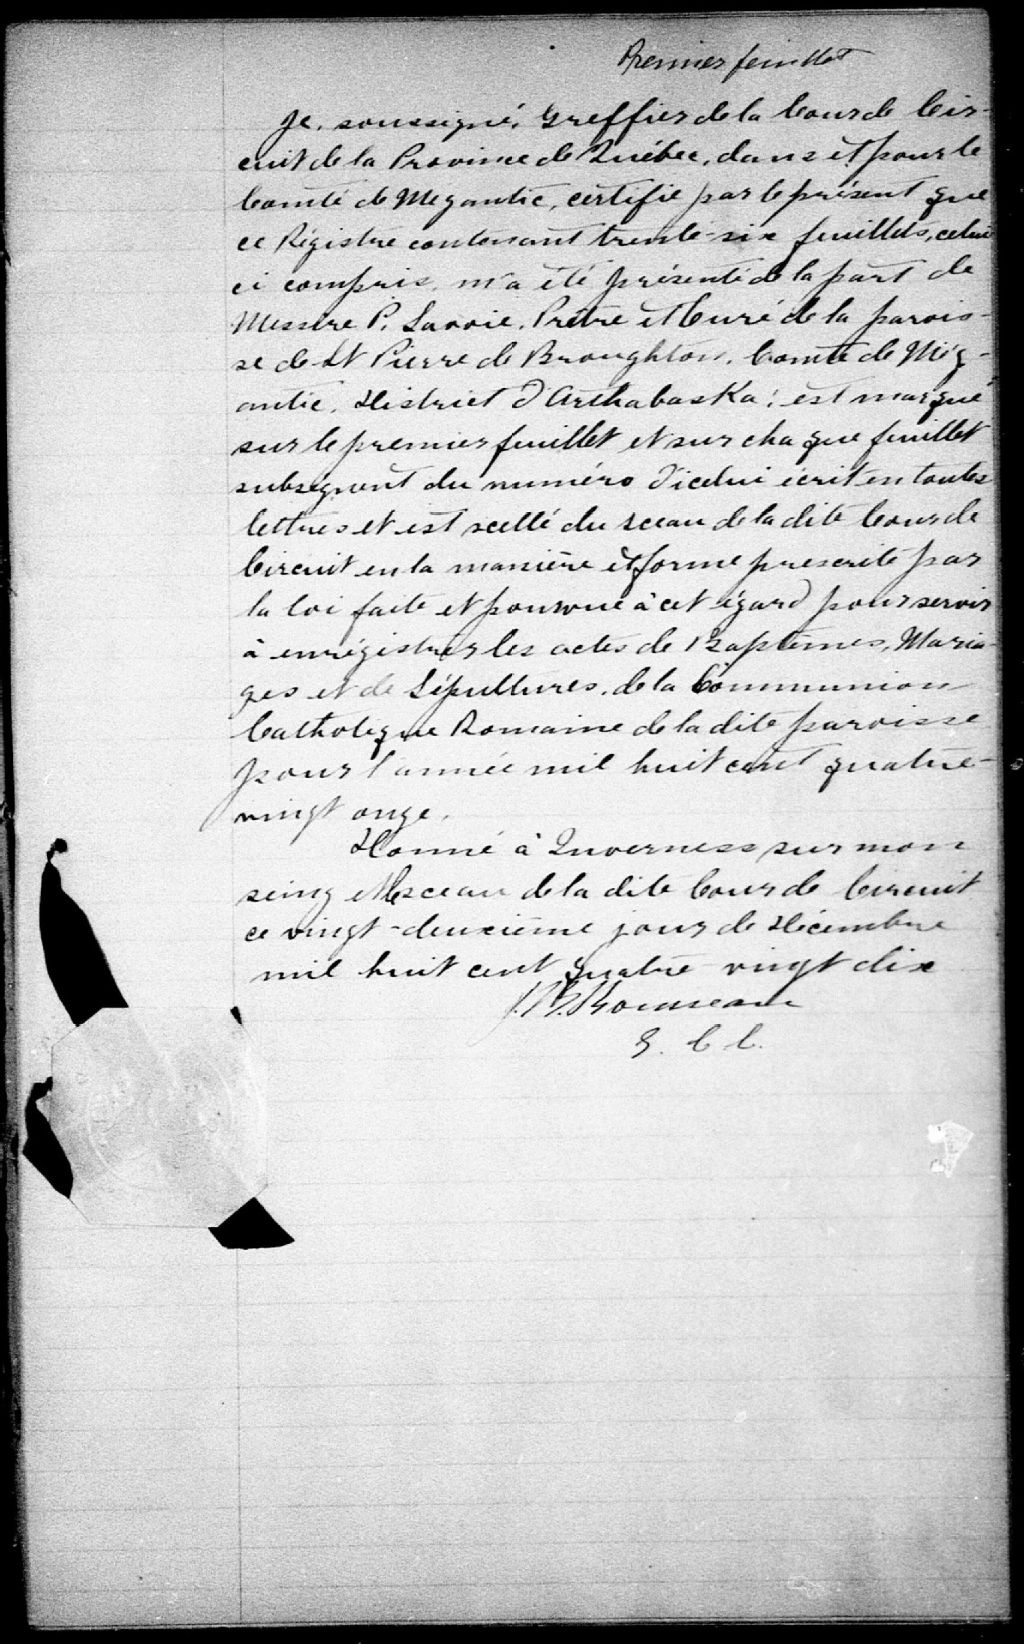 Premier feuillet
Je, soussigné, Greffier de la Cour de Cir-
cuit de la Province de Québec, dans et pour le
Comté de Megantic, certifie par le présent que
ce Régistre contenant trente-six feuillets, celui
ci compris, m'a été présenté de la part de
Messire P. Savoie, Prêtre et Curé de la parois-
se de St Pierre de Broughton, Comté de Még-
antic, District d'Arthabaska; est marqué
sur le premier feuillet et sur chaque feuillet
subséquent du numéro d'icelui écrit en toutes
lettres et est scellé du sceau de la dite Cour de
Circuit en la manière et forme prescrite par
la loi faite et pourvue à cet égard pour servir
à enrégistrer les actes de Baptêmes, Maria-
ges et de Sépultures, de la Communion
Catholique Romaine de la dite paroisse
pour l'année mil huit cent quatre-
vingt onze.
Donné à Inverness sur mon
seing et le sceau de la dite Cour de Circuit
ce vingt-deuxième jour de Décembre
mil huit cent quatre vingt dix
J. B. Rousseau
G. C. C.